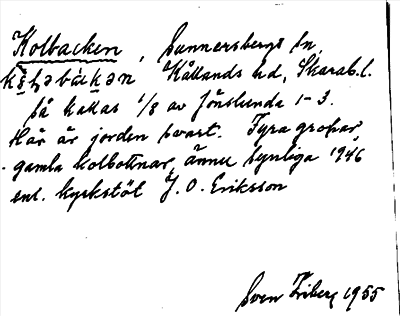 Kolbacken, Sunnersbergs sn,
Kållands hd, Skarab.l.
så kallas 1/8 av Jönslunda 1-3.
Här är jorden svart. Fyra gropar,
gamla kolbottnar, ännu synliga 1946
enl. kyrkstöt J. O. Eriksson
Sven Friberg 1955